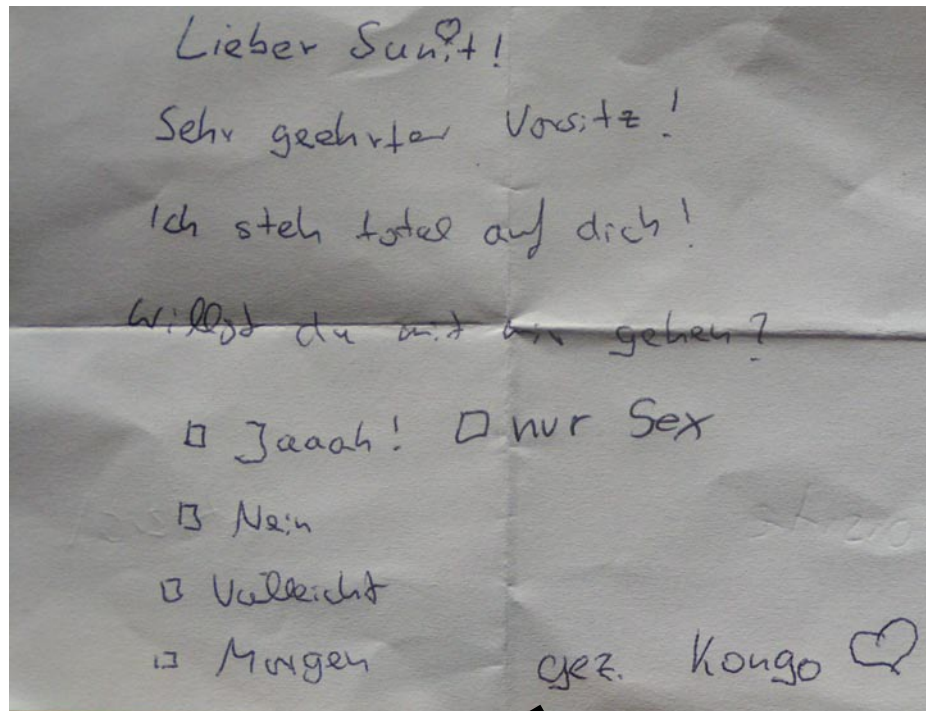 Lieber Sunit!
Sehr geehrter Vorsitz!
Ich steh total auf dich!
Willst du mit mir gehen?
Jaaah! nur Sex
Nein
Vielleicht
Morgen
gez. Kongo